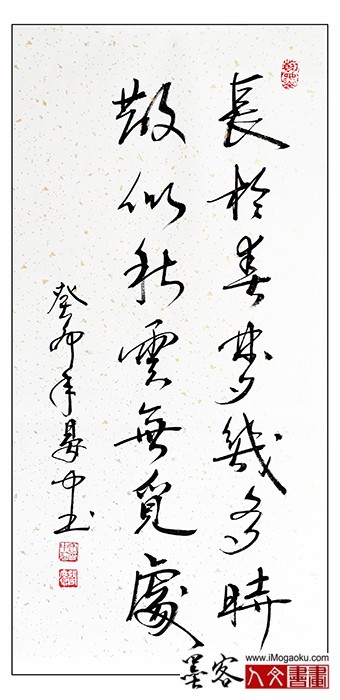 長於春夢幾多時
散似秋雲無覓處
癸卯年晏中书
墨客
www.iMogaoku.com
人文書畫